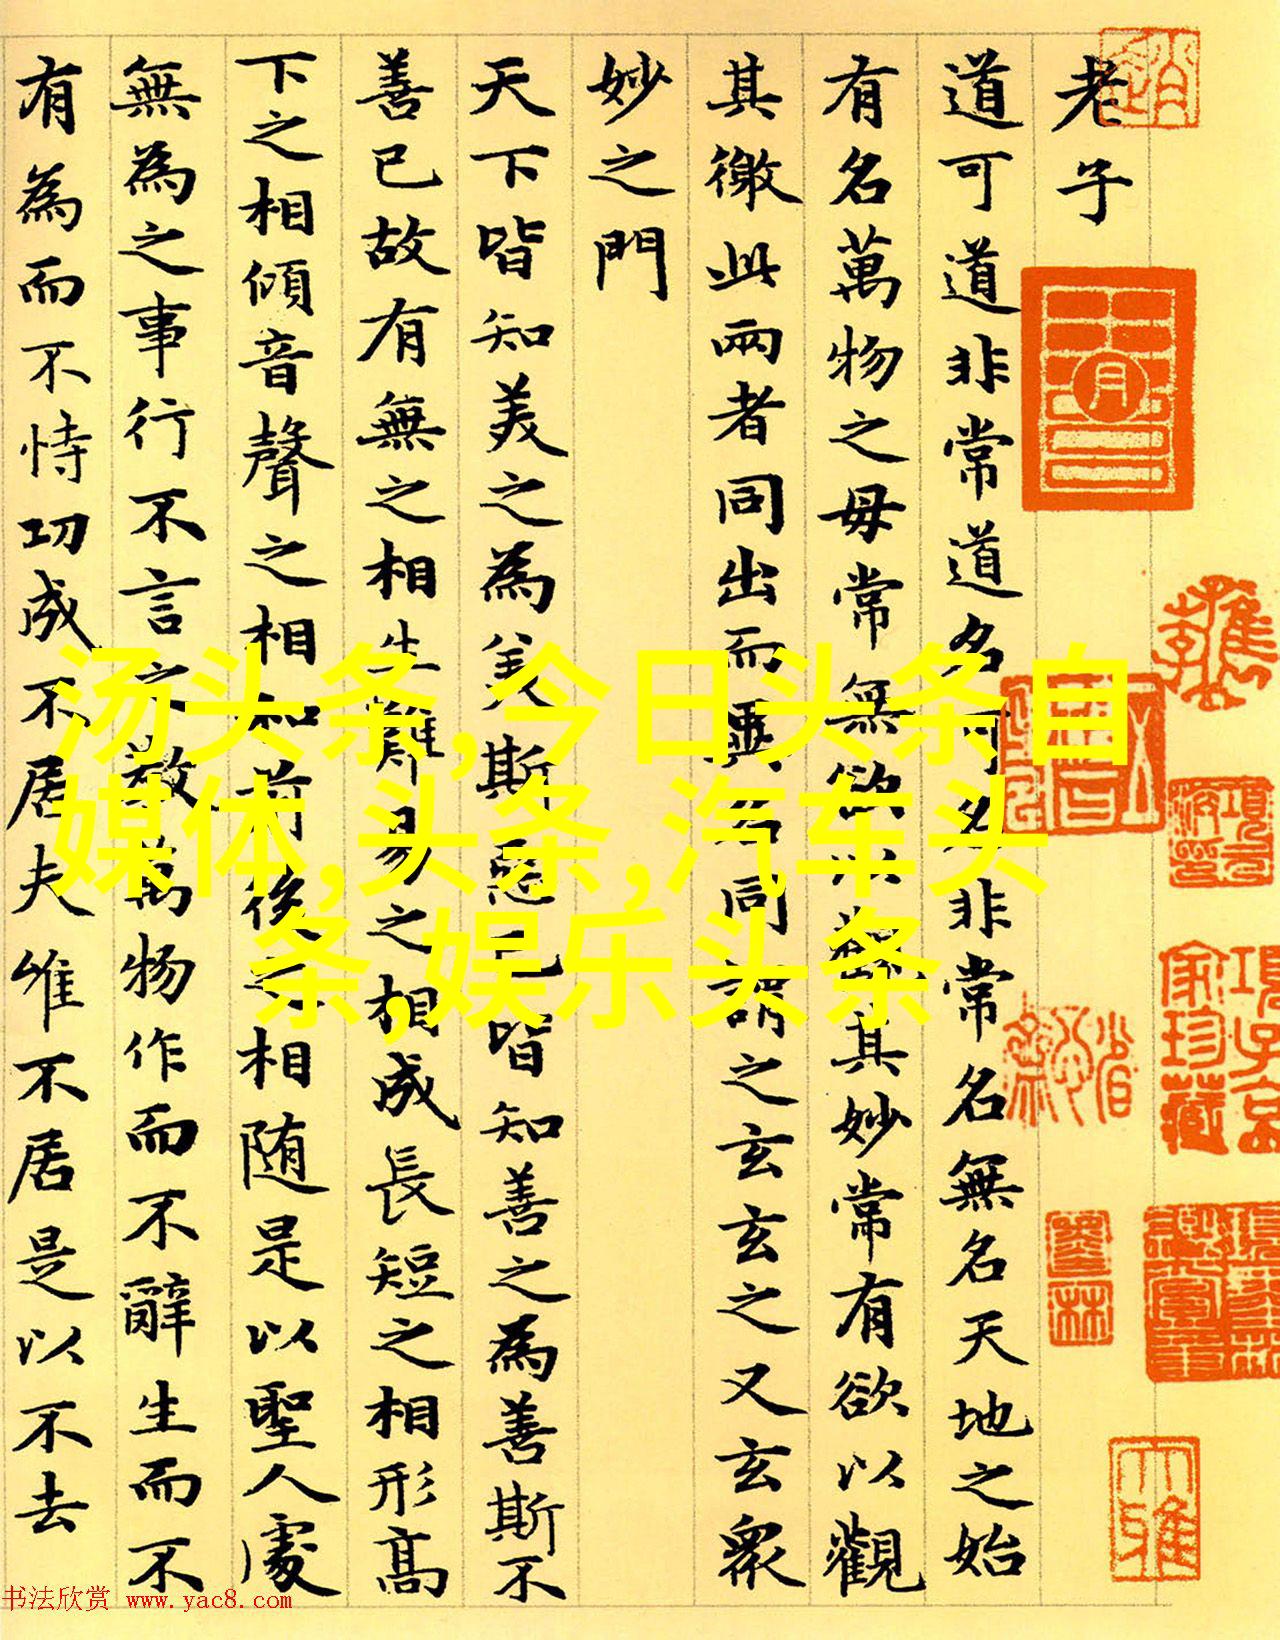 老子
道可道非常道名可名非常名無名天地之始
有名萬物之母常無欲以觀其妙常有欲以觀
其徼此兩者同出而異名同謂之玄玄之又玄衆
妙之門
天下皆知美之為美斯惡已皆知善之為善斯不
善已故有無之相生難易之相成長短之相形高
下之相傾音聲之相和前後之相随是以聖人處
無為之事行不言之教萬物作而不辭生而不
有為而不恃功成不居夫惟不居是以不去
汤头条,今日头条自
媒体,头条,汽车头
条,娱乐头条
书法欣赏 www.yac8.com